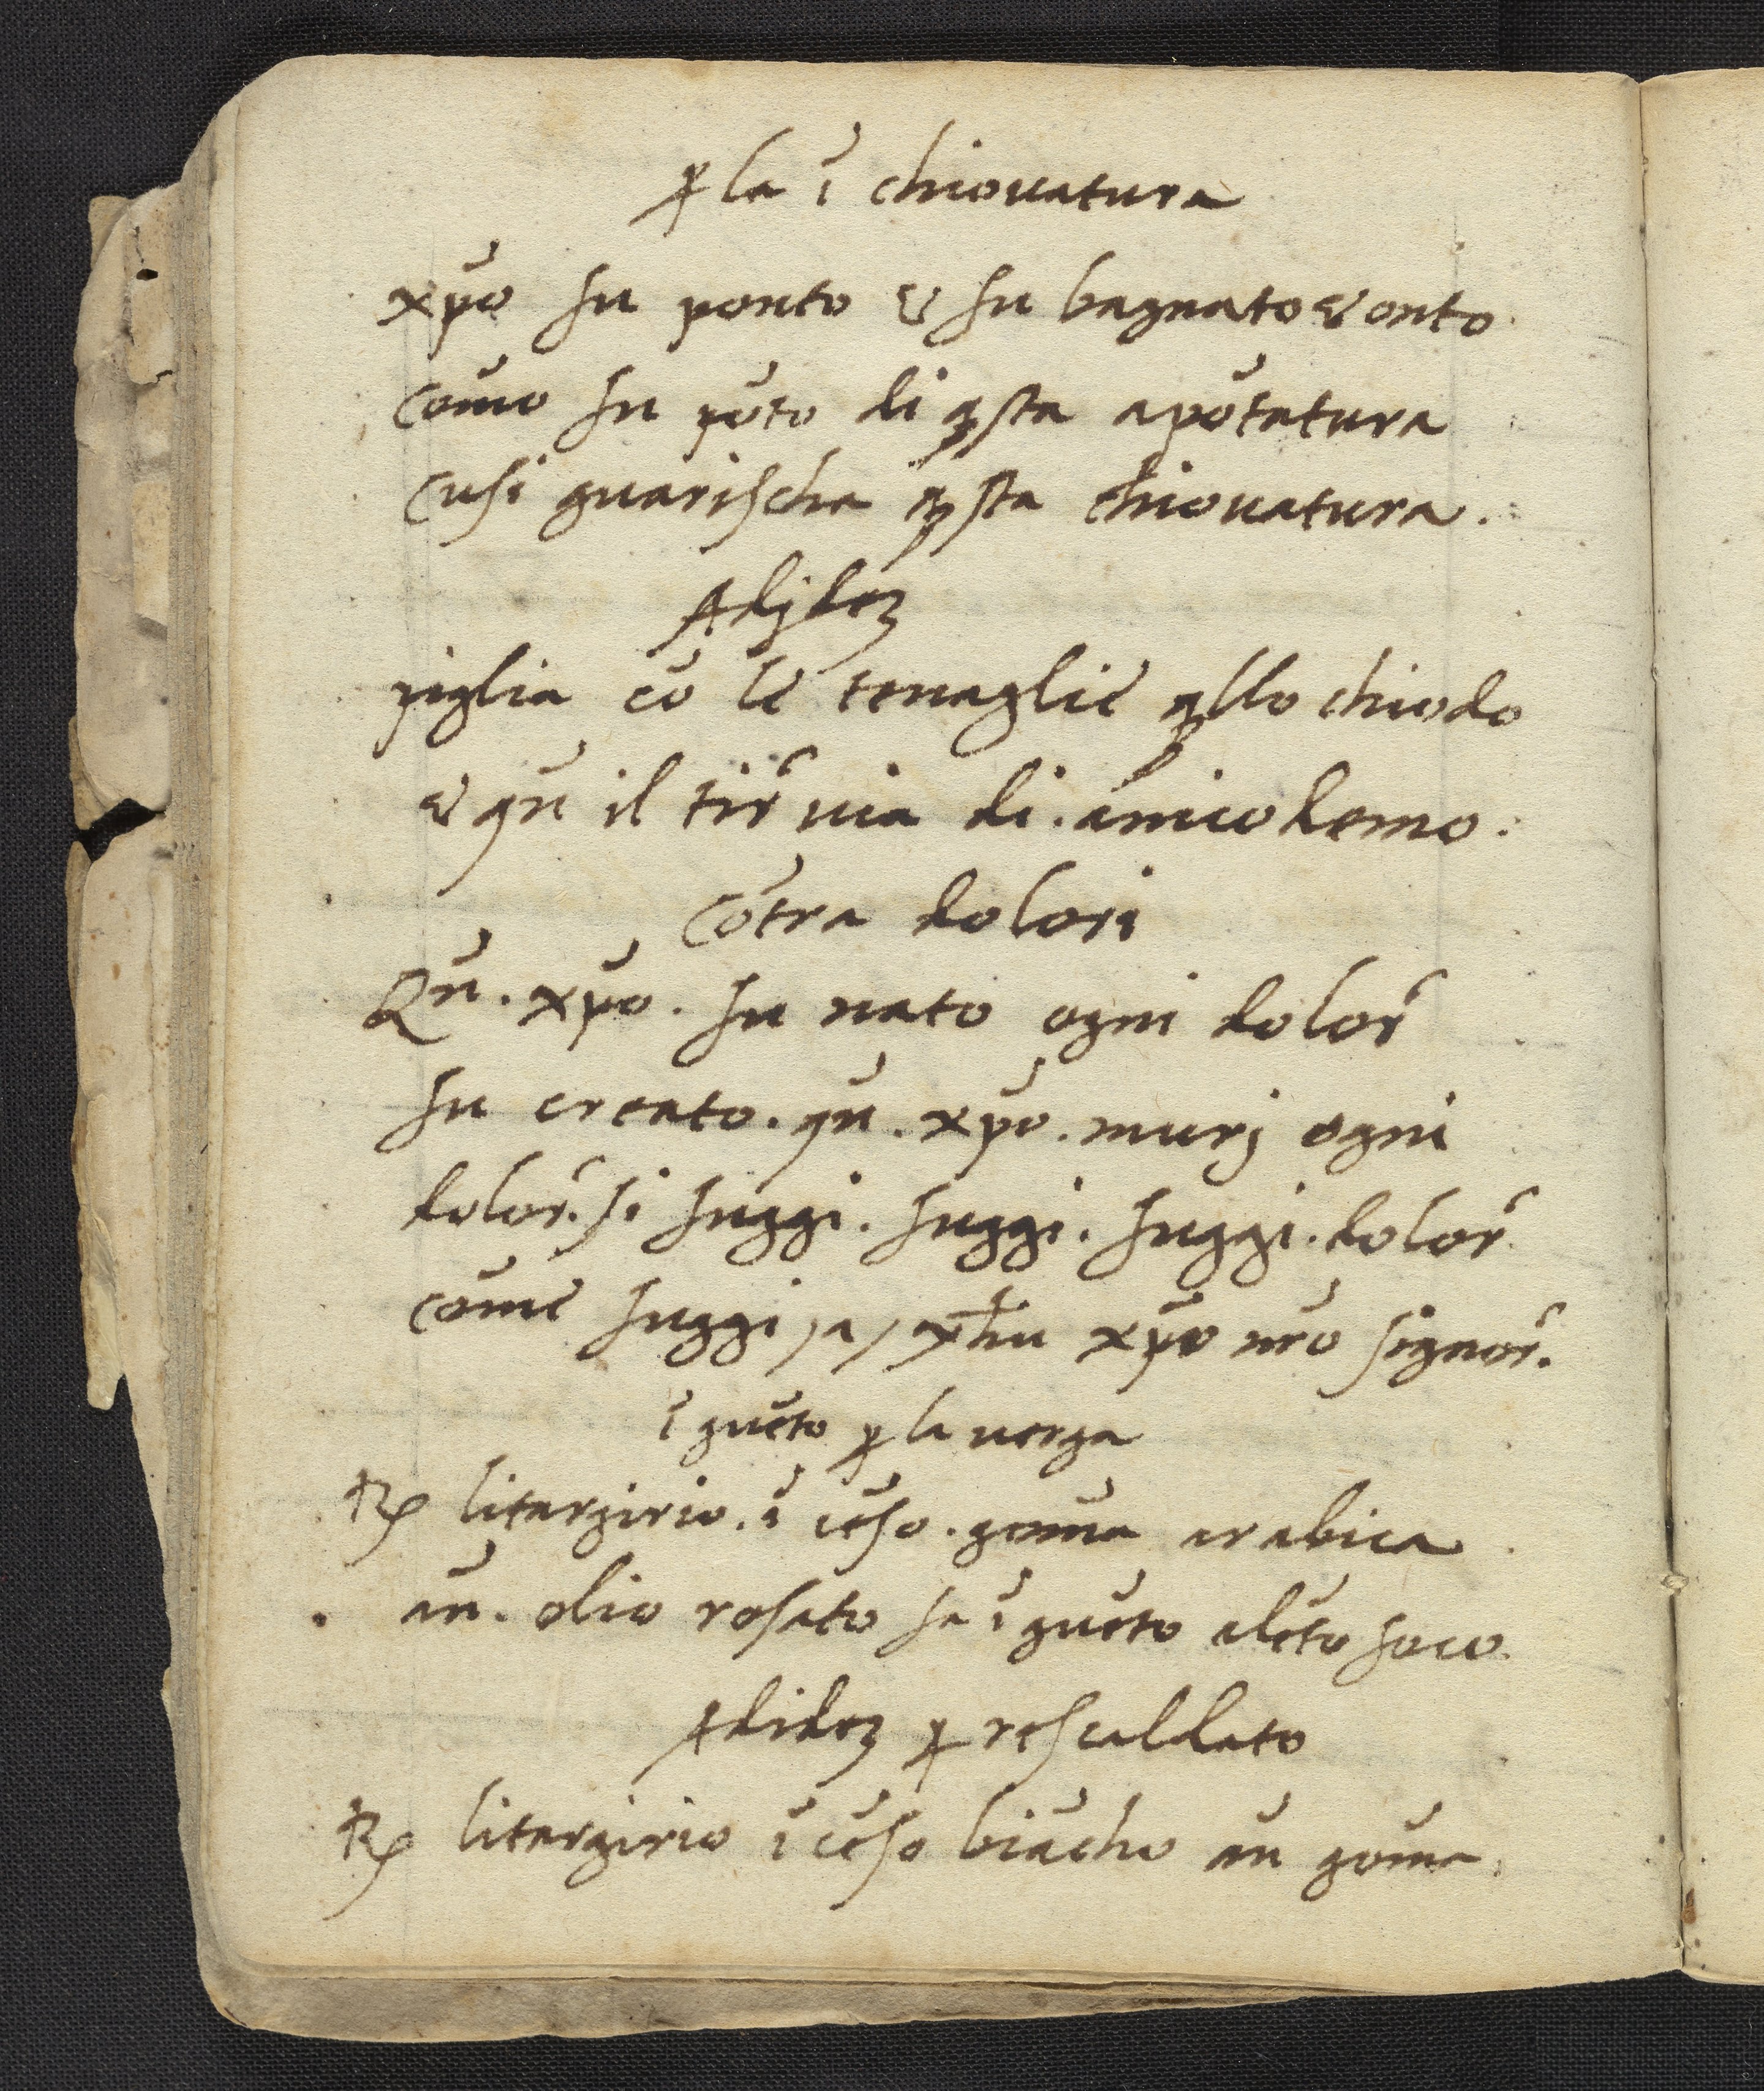 ꝑ la ī chiouatura
xp̄o fu ponto & fu bagnato & onto
comō fu pōto di qsta apōtatura
cusi guarischa qsta chiouatura.
Adjdez
piglia cō le tenaglie qllo chiodo
& qn̄ il tir̄ uia di. anicodemo.
Cōtra dolori
Qn̄. xp̄o. fu nato ogni dolor̄
fu creato. qn̄. xp̄o. murj ogni
dolor̄. si fuggi. fuggi. fuggi. dolor̄
comē fuggi /a/ yħu xp̄o nr̄o signor̄.
ī guēto ꝑ la uerga
℞ litargirio. ī cēso. gom̄a arabica
an̄. olio rosato fa ī guēto alēto foco.
Adidez ꝑ rescaldato
℞ litargirio ī cēso biācho an̄ gom̄a